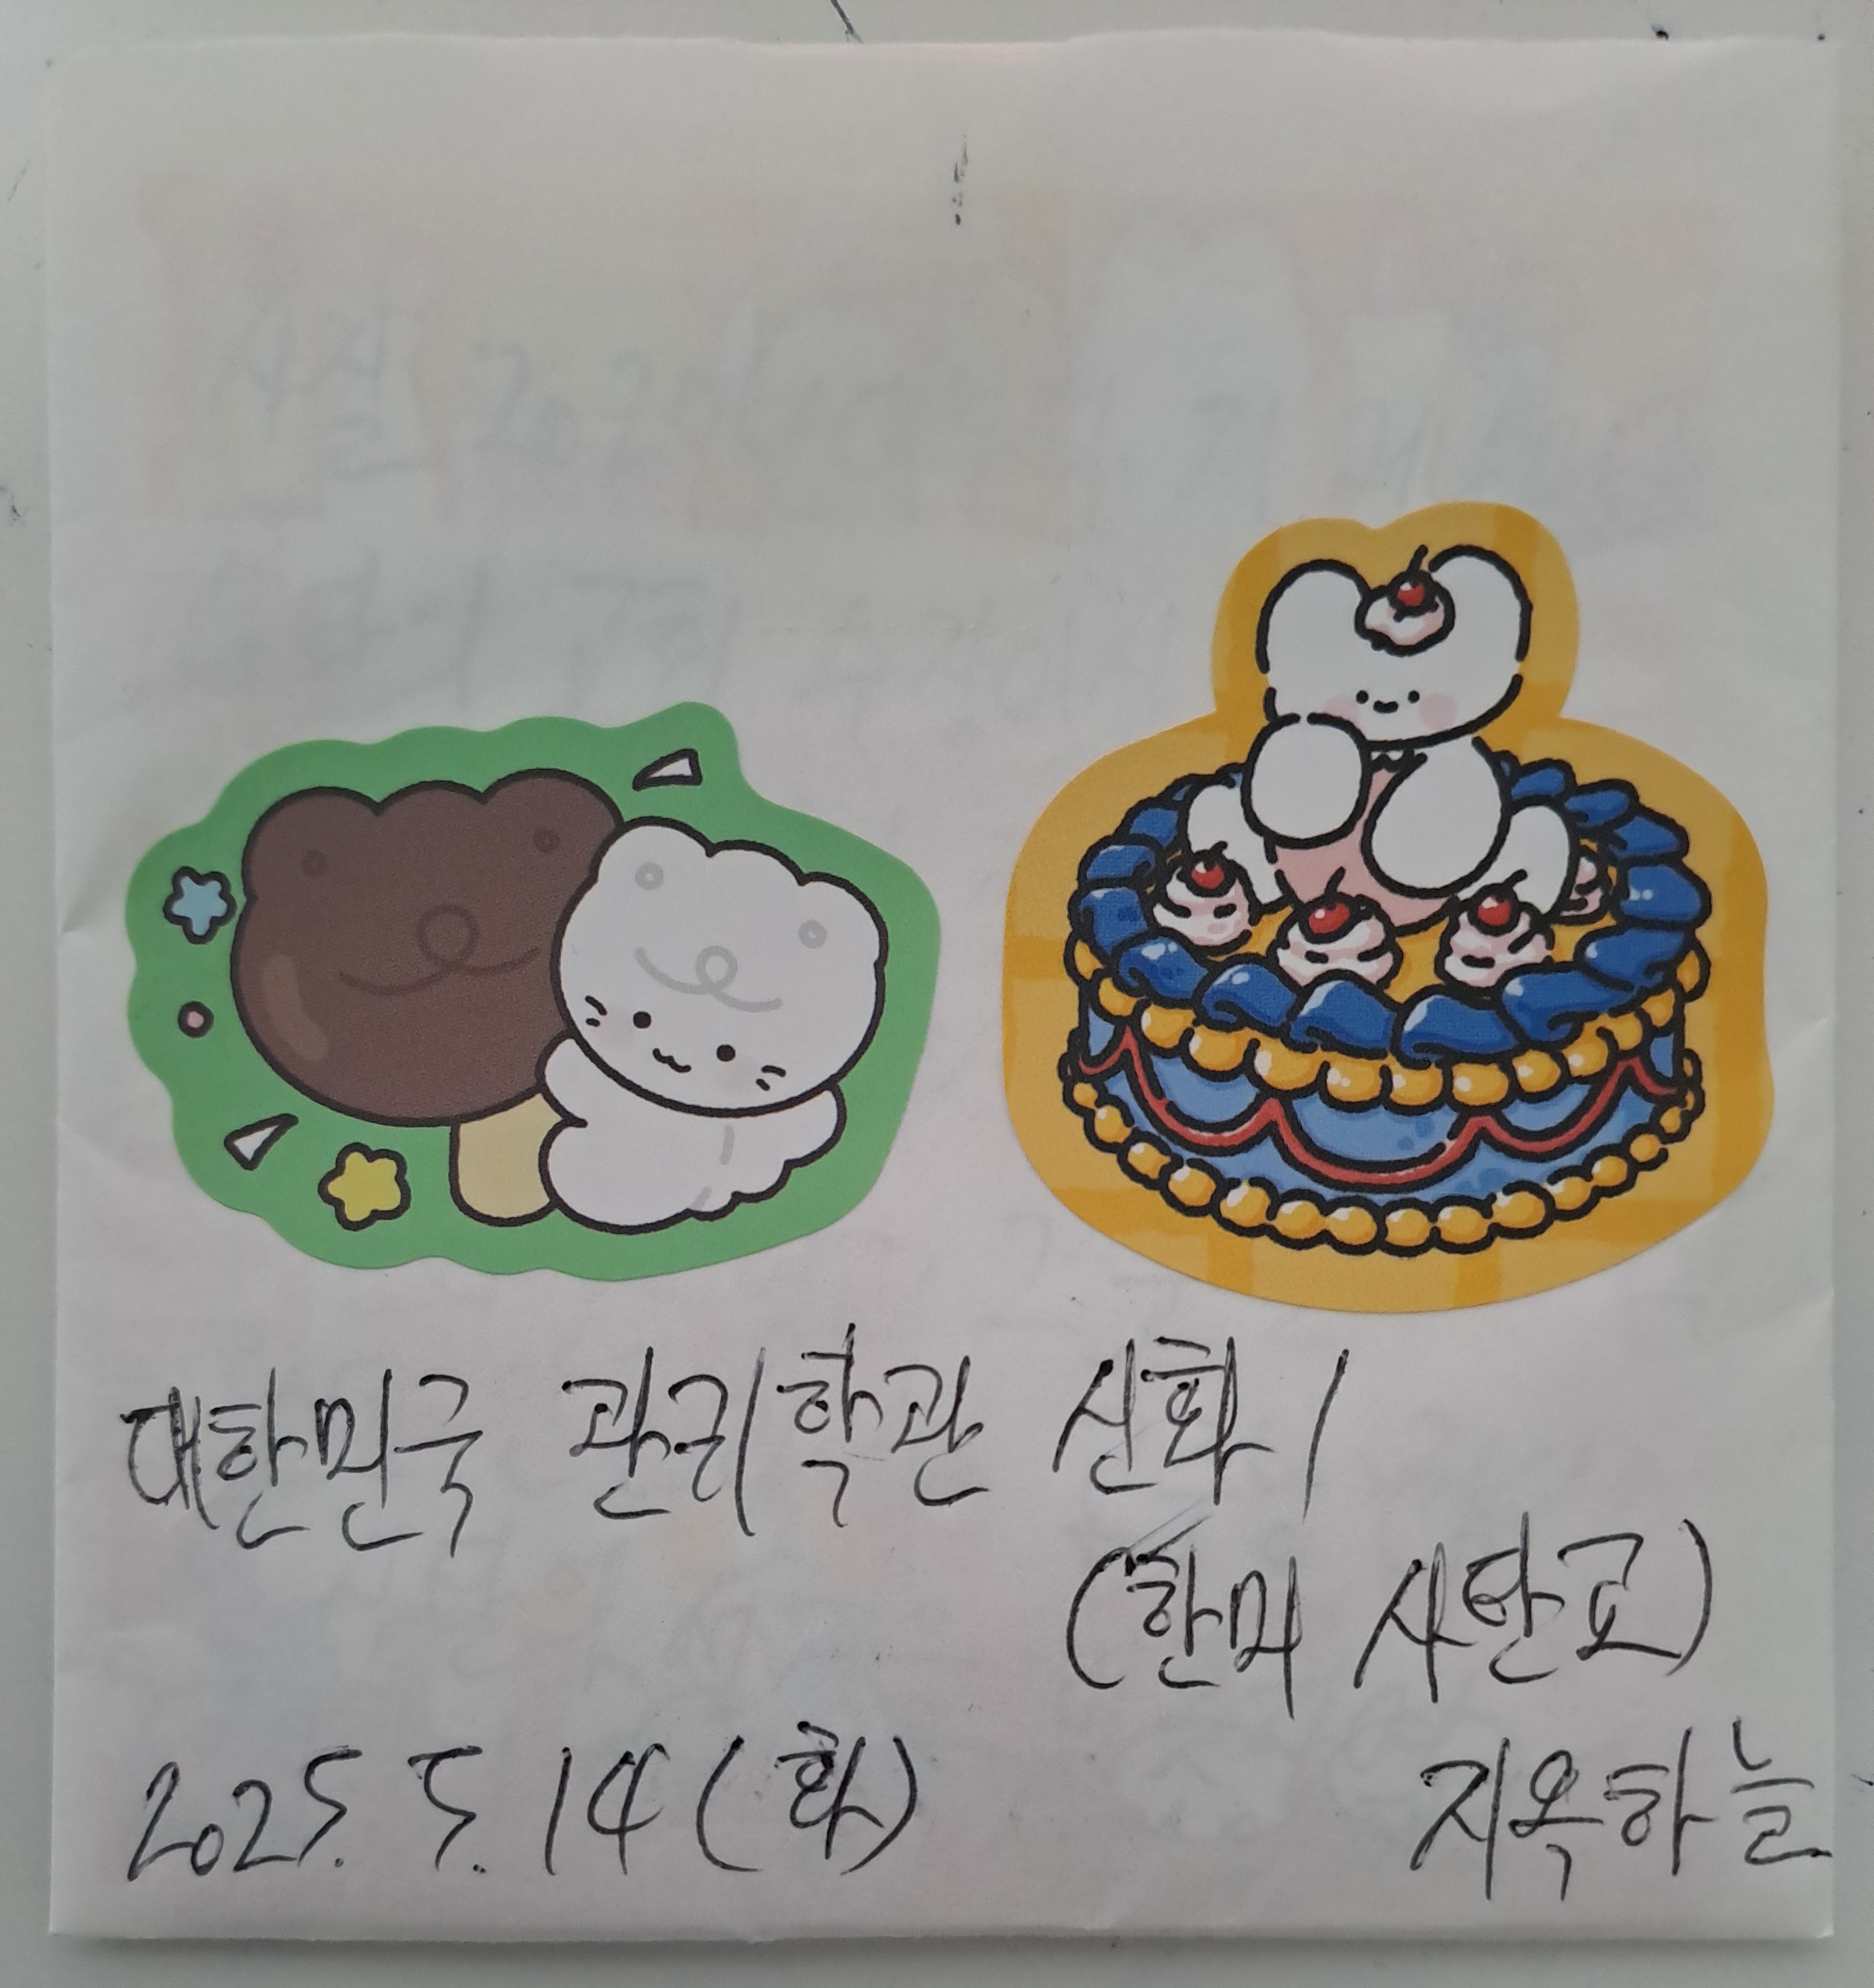 대한민국 관리학관 신화 1
(한미 사탄고)
2025. 5. 14 (화)
지옥하늘